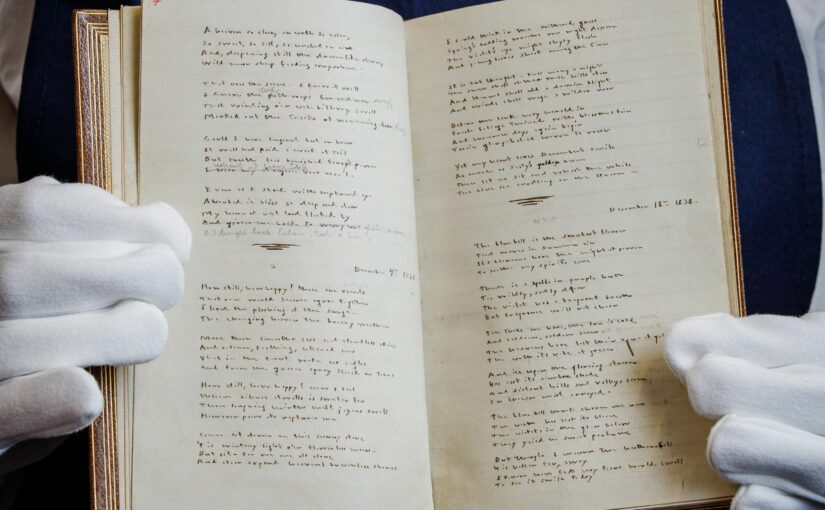 A heaven so clear, an earth so calm,
So sweet, so soft, so hushed in air
And, deepening still the dreamlike charm,
Wild moor sheep feeding everywhere -
That was the scene - I knew it well
I knew the pathways far and near
That winding o'er each billowy swell
Marked out the tracks of wandering deer
Could I have lingered but an hour
It well had paid a week of toil
But truth has banished fancy's power
I hear my dungeon bars recoil -
Even as I stood with raptured eye
Absorbed in bliss so deep and dear
My hour of rest had fleeted by
And given me back to weary care
And brought back labour
December 7th 1838
How still, how happy! those are words
That once would scarce agree together
I loved the plashing of the surge -
The changing heaven the breezy weather
More than smooth seas and cloudless skies
And solemn, soothing, softened airs
That in the forest woke no sighs
And from the green spray shook no tears
How still, how happy! now I feel
Where silence dwells is sweeter far
Than laughing mirth's most joyous swell
However pure its raptures are
Come sit down on this sunny stone
'Tis wintry light o'er flowerless moors -
But sit - for we are all alone
And clear expand heaven's breathless shores
I could think in the withered grass
Spring's budding wreaths we might discern
The violet's eye might shyly flash
And young leaves shoot among the fern
It is but thought - full many a night
The snow shall clothe those hills afar
And storms shall add a drearier blight
And winds shall wage a wilder war
Before the lark may herald in
Fresh foliage twined with blossoms fair
And summer days again begin
Their glory-haloed crown to wear
Yet my heart loves December's smile
As much as July's golden beam
Then let us sit and watch the while
The blue ice curdling on the stream -
December 18th 1838.
The bluebell is the sweetest flower
That waves in summer air
Its blossoms have the mightiest power
To soothe my spirit's care
There is a spell in purple heath
Too wildly, sadly dear
The violet has a fragrant breath
But fragrance will not cheer
The trees are bare, the sun is cold
And seldom, seldom seen
The heavens have lost their zone of gold
The earth its robe of green
And ice upon the glancing stream
Has cast its sombre shade
And distant hills and valleys seem
In frozen mist arrayed -
The blue bell cannot charm me now
The heath has lost its bloom
The violets in the glen below
They yield no sweet perfume
But though I mourn the heather-bell
'Tis better far, away
I know how fast my tears would swell
To see it smile today